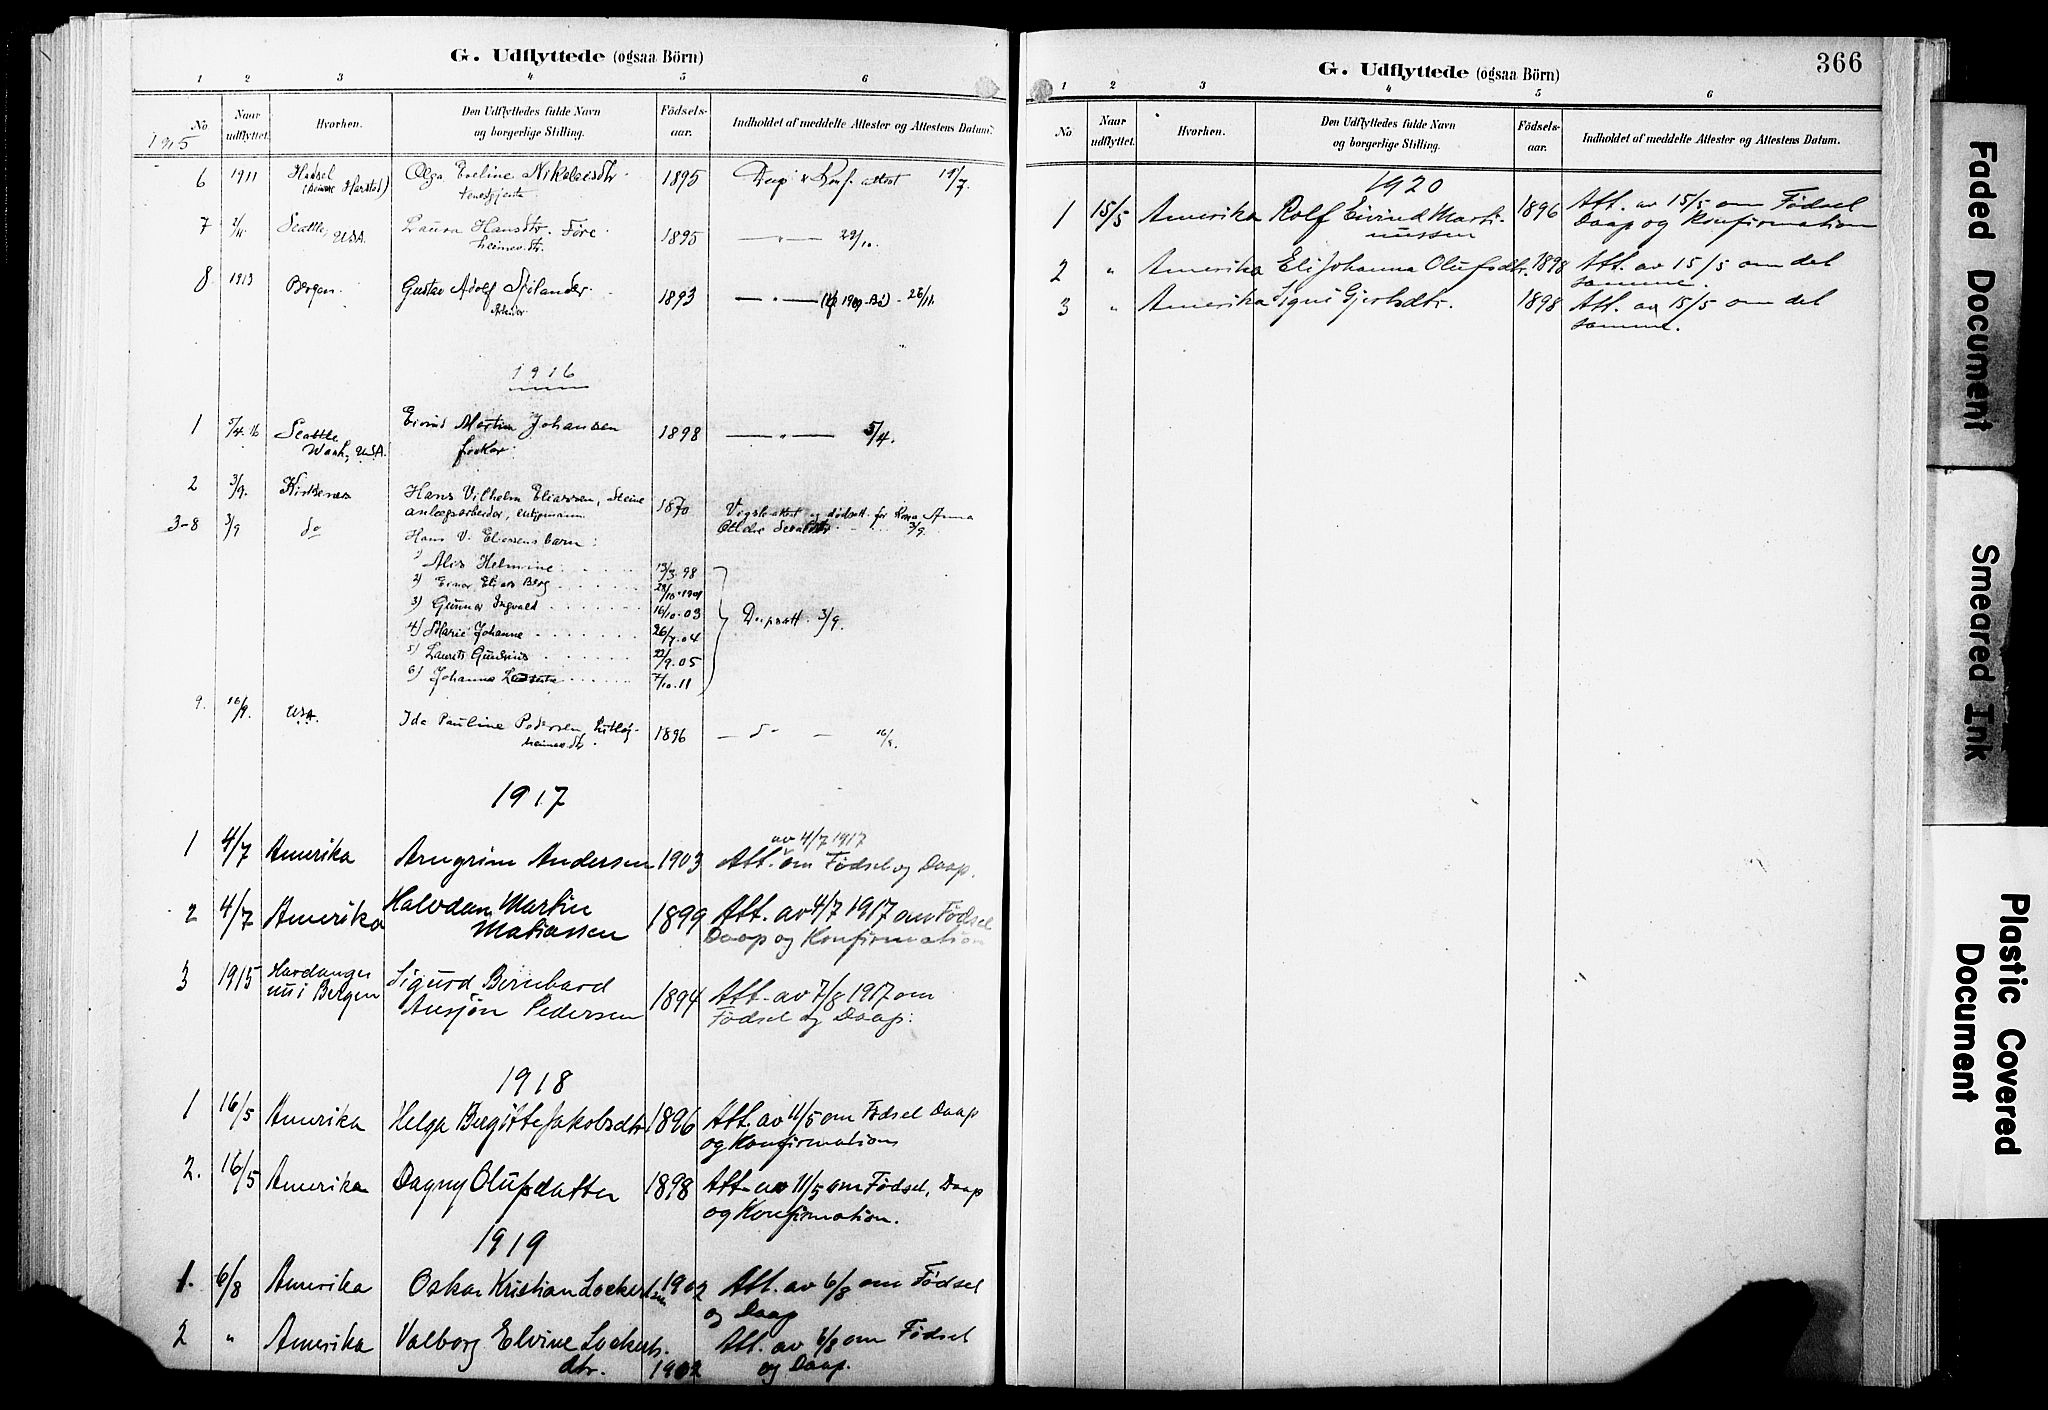 G. Udflyttede (ogsaa Börn)
1 2 3 4 5 6
No
Naar udflyttet.
Hvorhen.
Den Udflyttedes fulde Navn
og borgerlige Stilling.
Födsels-
aar.
Indholdet af meddelte Attester og Attestens Datum.
1915
6 1911 Hadsel Olga Eveline Nikolaisdtr. 1895 Daap & Konf. attest
7 Seattle, USA. Laura Hansdtr. Føre 1895 — " — 29/10.
heimevdtr.
8 1913 Bergen Gustav Adolf Sjölander 1893 — " — 26/11.
1916
1 5/4.16 Seattle Eivind Martin Johansen 1898 — " — 5/4.
Wash., USA. fisker
2 3/9. Kirkenes Hans Vilhelm Eliassen, Steine 1870
anlægsarbeider, enkjemann
3-8 3/9 do Hans V. Eliassens barn:
1) Alis Helmine 13/3 98
2) Einar Elias Berg 29/10-1901
3) Gunnar Ingvald 16/10-03
4) Marie Johanne 26/7-04 Daapsatt. 3/9.
5) Laurits Gundinus 22/9.05
6) Johanne 7/10.11
9. 16/9. USA. Ida Pauline Pedersen, 1896 — " — 16/9.
heimevdtr.
1917
av 4/7 1917
1 4/7 Amerika Arngrim Andersen 1903 Att. om Fødsel og Daap.
2 4/7 Amerika Halvdan Martin 1899 Att. av 4/7 1917 om Fødsel
Matiassen Daap og Konfirmation
3 1915 Hardanger Sigurd Bernhard 1894 Att. av 7/8 1917 om
nu i Bergen Ansjön Pedersen Fødsel og Daap.
1918
1 16/5 Amerika Helga Birgitte Jakobsdtr 1896 Att. av 11/5 om Fødsel Daap
og Konfirmation
2. 16/5 Amerika Dagny Olufsdatter 1898 Att. av 11/5 om Fødsel, Daap
og Konfirmation.
1919
1. 6/8 Amerika Oskar Kristian Lockert 1902 Att. av 6/8 om Fødsel
og Daap
2 " Amerika Valborg Elvine Lockerts. Att. av 6/8 om Fødsel
dtr. 1902 og Daap.
366
G. Udflyttede (ogsaa Börn)
1 2 3 4 5 6
No
Naar udflyttet.
Hvorhen.
Den Udflyttedes fulde Navn
og borgerlige Stilling.
Födsels-
aar.
Indholdet af meddelte Attester og Attestens Datum.
1920
1 15/5 Amerika Rolf Eivind Marti- 1896 Att. av 15/5 om Fødsel
nussen Daap og Konfirmation
2 " Amerika Eli Johanna Olufsdtr. 1898 Att. av 15/5 om det
samme.
3 " Amerika Signi Gjertsdtr. 1898 Att. av 15/5 om det
samme.
Faded Document
Smeared Ink
Plastic Covered
Document